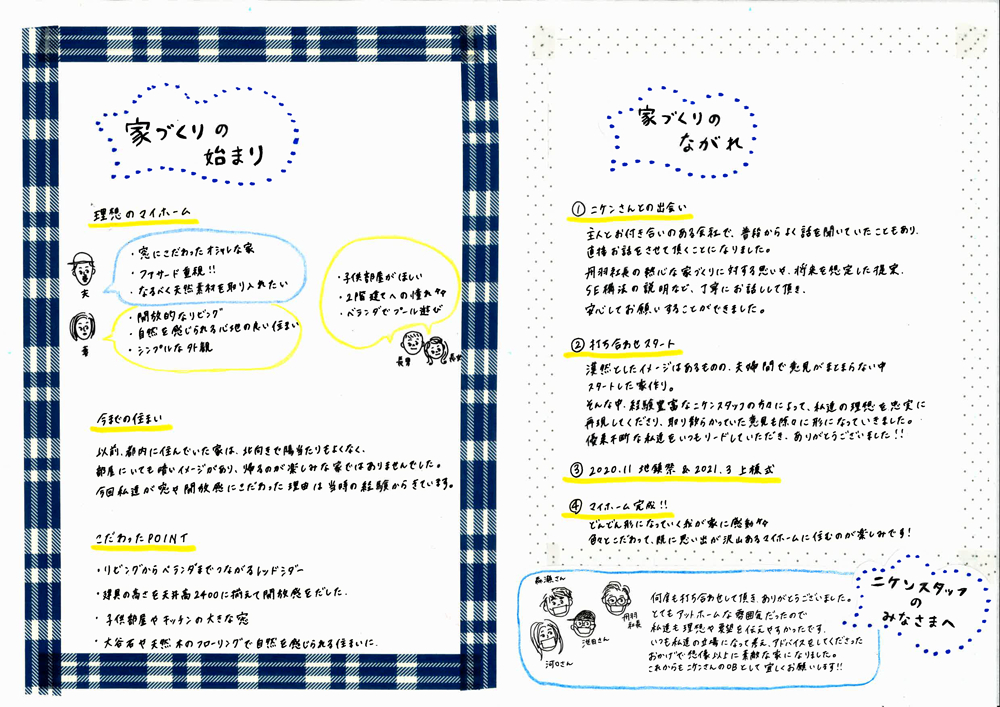 家づくりの
始まり
理想のマイホーム
・窓にこだわったオシャレな家
・ファサード重視!!
・なるべく天然素材を取り入れたい
夫
・開放的なリビング
・自然を感じられる心地の良い住まい
・シンプルな外観
妻
・子供部屋がほしい
・2階建てへの憧れ
・ベランダでプール遊び
長男
長女
今までの住まい
以前、都内に住んでいた家は、北向きで陽当たりもよくなく、
部屋にいても暗いイメージがあり、帰るのが楽しみな家ではありませんでした。
今回私達が窓や開放感にこだわった理由は当時の経験からきています。
こだわったPOINT
・リビングからベランダまでつながるレッドシダー
・建具の高さを天井高2400に揃えて開放感をだした。
・子供部屋やキッチンの大きな窓
・大谷石や天然木のフローリングで自然を感じられる住まいに。
家づくりの
ながれ
① ニケンさんとの出会い
主人とお付き合いのある会社で、普段からよく話を聞いていたこともあり、
直接お話をさせて頂くことになりました。
丹羽社長の熱心な家づくりに対する思いや、将来を想定した提案、
SE構法の説明など、丁寧にお話しして頂き、
安心してお願いすることができました。
② 打ち合わせスタート
漠然としたイメージはあるものの、夫婦間で意見がまとまらない中
スタートした家作り。
そんな中、経験豊富なニケンスタッフの方々によって、私達の理想を忠実に
再現してくださり、取り散らかっていた意見も徐々に形になっていきました。
優柔不断な私達をいつもリードしていただき、ありがとうございました!!
③ 2020.11 地鎮祭 & 2021.3 上棟式
④ マイホーム完成!!
どんどん形になっていく我が家に感動
色々とこだわって、既に思い出が沢山あるマイホームに住むのが楽しみです!
ニケンスタッフ
の
みなさまへ
丹羽
社長
池田さん
河口さん
何度も打ち合わせして頂き、ありがとうございました。
とてもアットホームな雰囲気だったので
私達も理想や要望を伝えやすかったです。
いつも私達の立場になって考え、アドバイスをしてくださった
おかげで想像以上に素敵な家になりました。
これからもニケンさんのOBとして宜しくお願いします!!